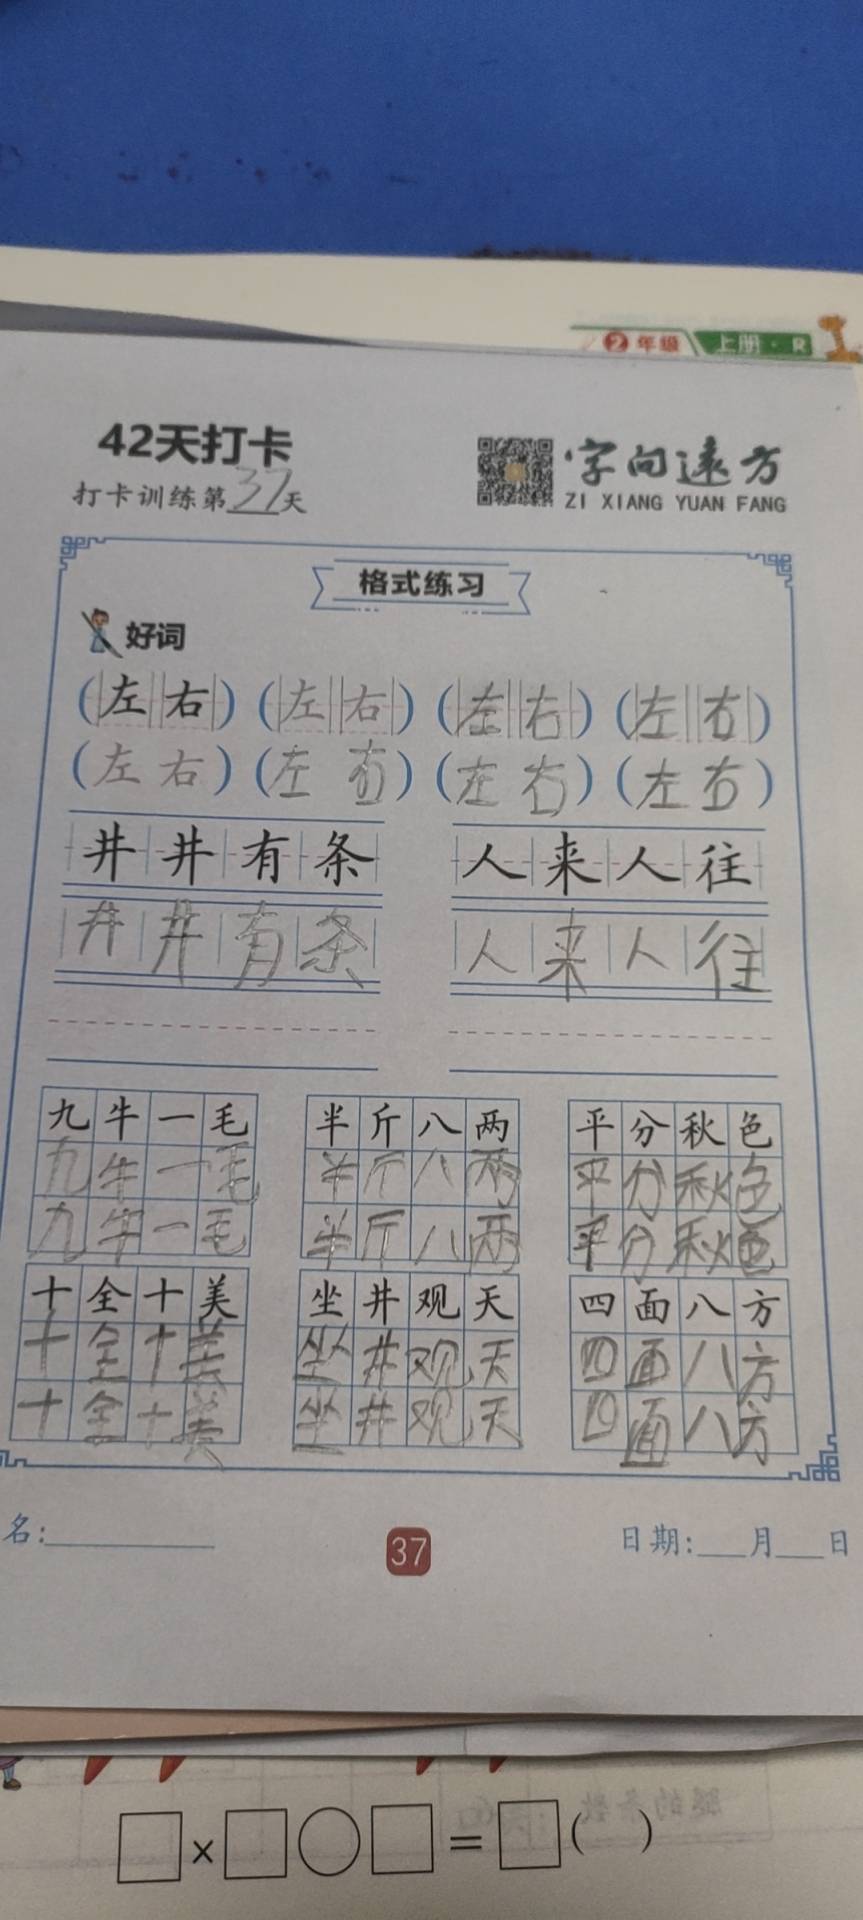 2年级 上册·R
42天打卡
打卡训练第37天
字向远方
ZI XIANG YUAN FANG
格式练习
好词
(左右) (左右) (左右) (左右)
(左右) (左右) (左右) (左右)
井井有条 人来人往
井井有条 人来人往
九牛一毛 半斤八两 平分秋色
九牛一毛 半斤八两 平分秋色
九牛一毛 半斤八两 平分秋色
十全十美 坐井观天 四面八方
十全十美 坐井观天 四面八方
十全十美 坐井观天 四面八方
名:
37
日期:___月___日
□×□○□=□( )